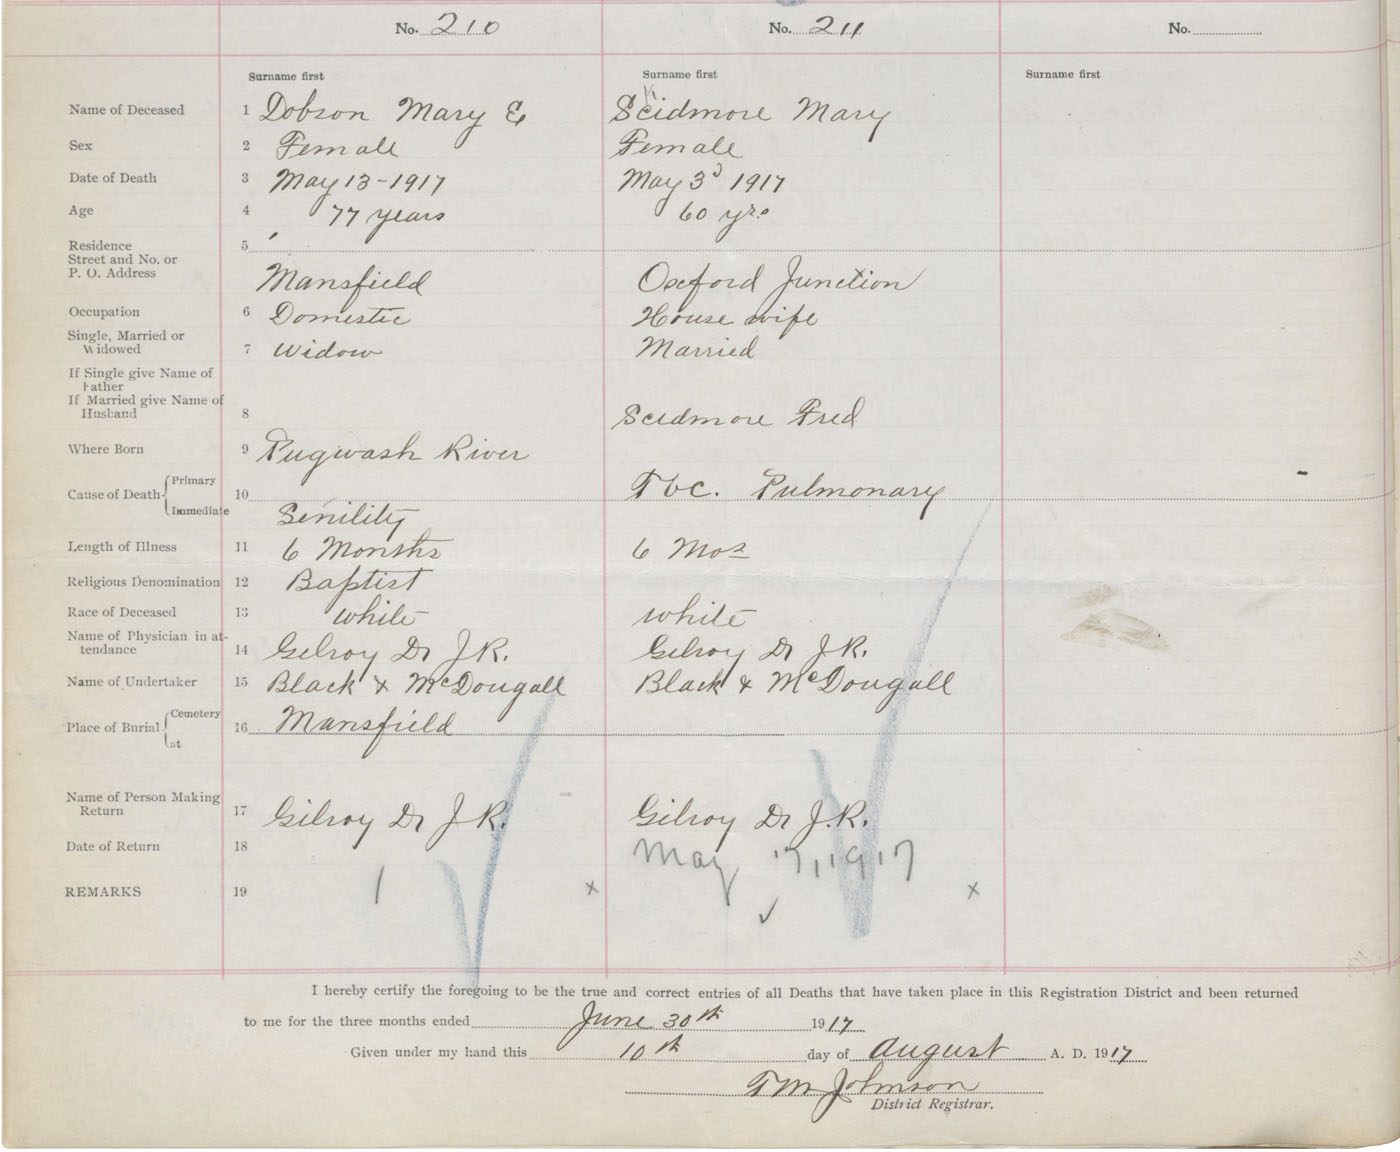 No. 210 No. 211 No.
Surname first Surname first Surname first
Name of Deceased 1 Dobson Mary E Scidmore Mary
Sex 2 Female Female
Date of Death 3 May 13-1917 May 3d 1917
Age 4 77 years 60 yrs
Residence 5
Street and No. or
P. O. Address Mansfield Oxford Junction
Occupation 6 Domestic House wife
Single, Married or
Widowed 7 Widow Married
If Single give Name of
Father
If Married give Name of
Husband 8 Scidmore Fred
Where Born 9 Pugwash River
Cause of Death Primary 10 Tbc. Pulmonary
Immediate Senility
Length of Illness 11 6 Months 6 Mos
Religious Denomination 12 Baptist
Race of Deceased 13 white white
Name of Physician in at-
tendance 14 Gilroy Dr J.R. Gilroy Dr J.R.
Name of Undertaker 15 Black & McDougall Black & McDougall
Place of Burial Cemetery 16 Mansfield
at
Name of Person Making
Return 17 Gilroy Dr J.R. Gilroy Dr J.R.
Date of Return 18 May 17, 1917
REMARKS 19 x x
I hereby certify the foregoing to be the true and correct entries of all Deaths that have taken place in this Registration District and been returned
to me for the three months ended June 30th 1917
Given under my hand this 10th day of August A. D. 1917
T M Johnson
District Registrar.